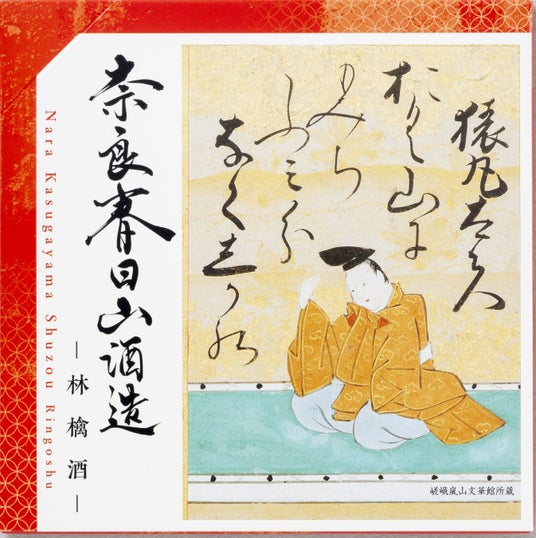 奈良春日山酒造
—林檎酒—
Nara Kasugayama Shuzou Ringoshu
猿丸太夫
おく山に
もみち
ふミ分
なくしかの
嵯峨嵐山文華館所蔵